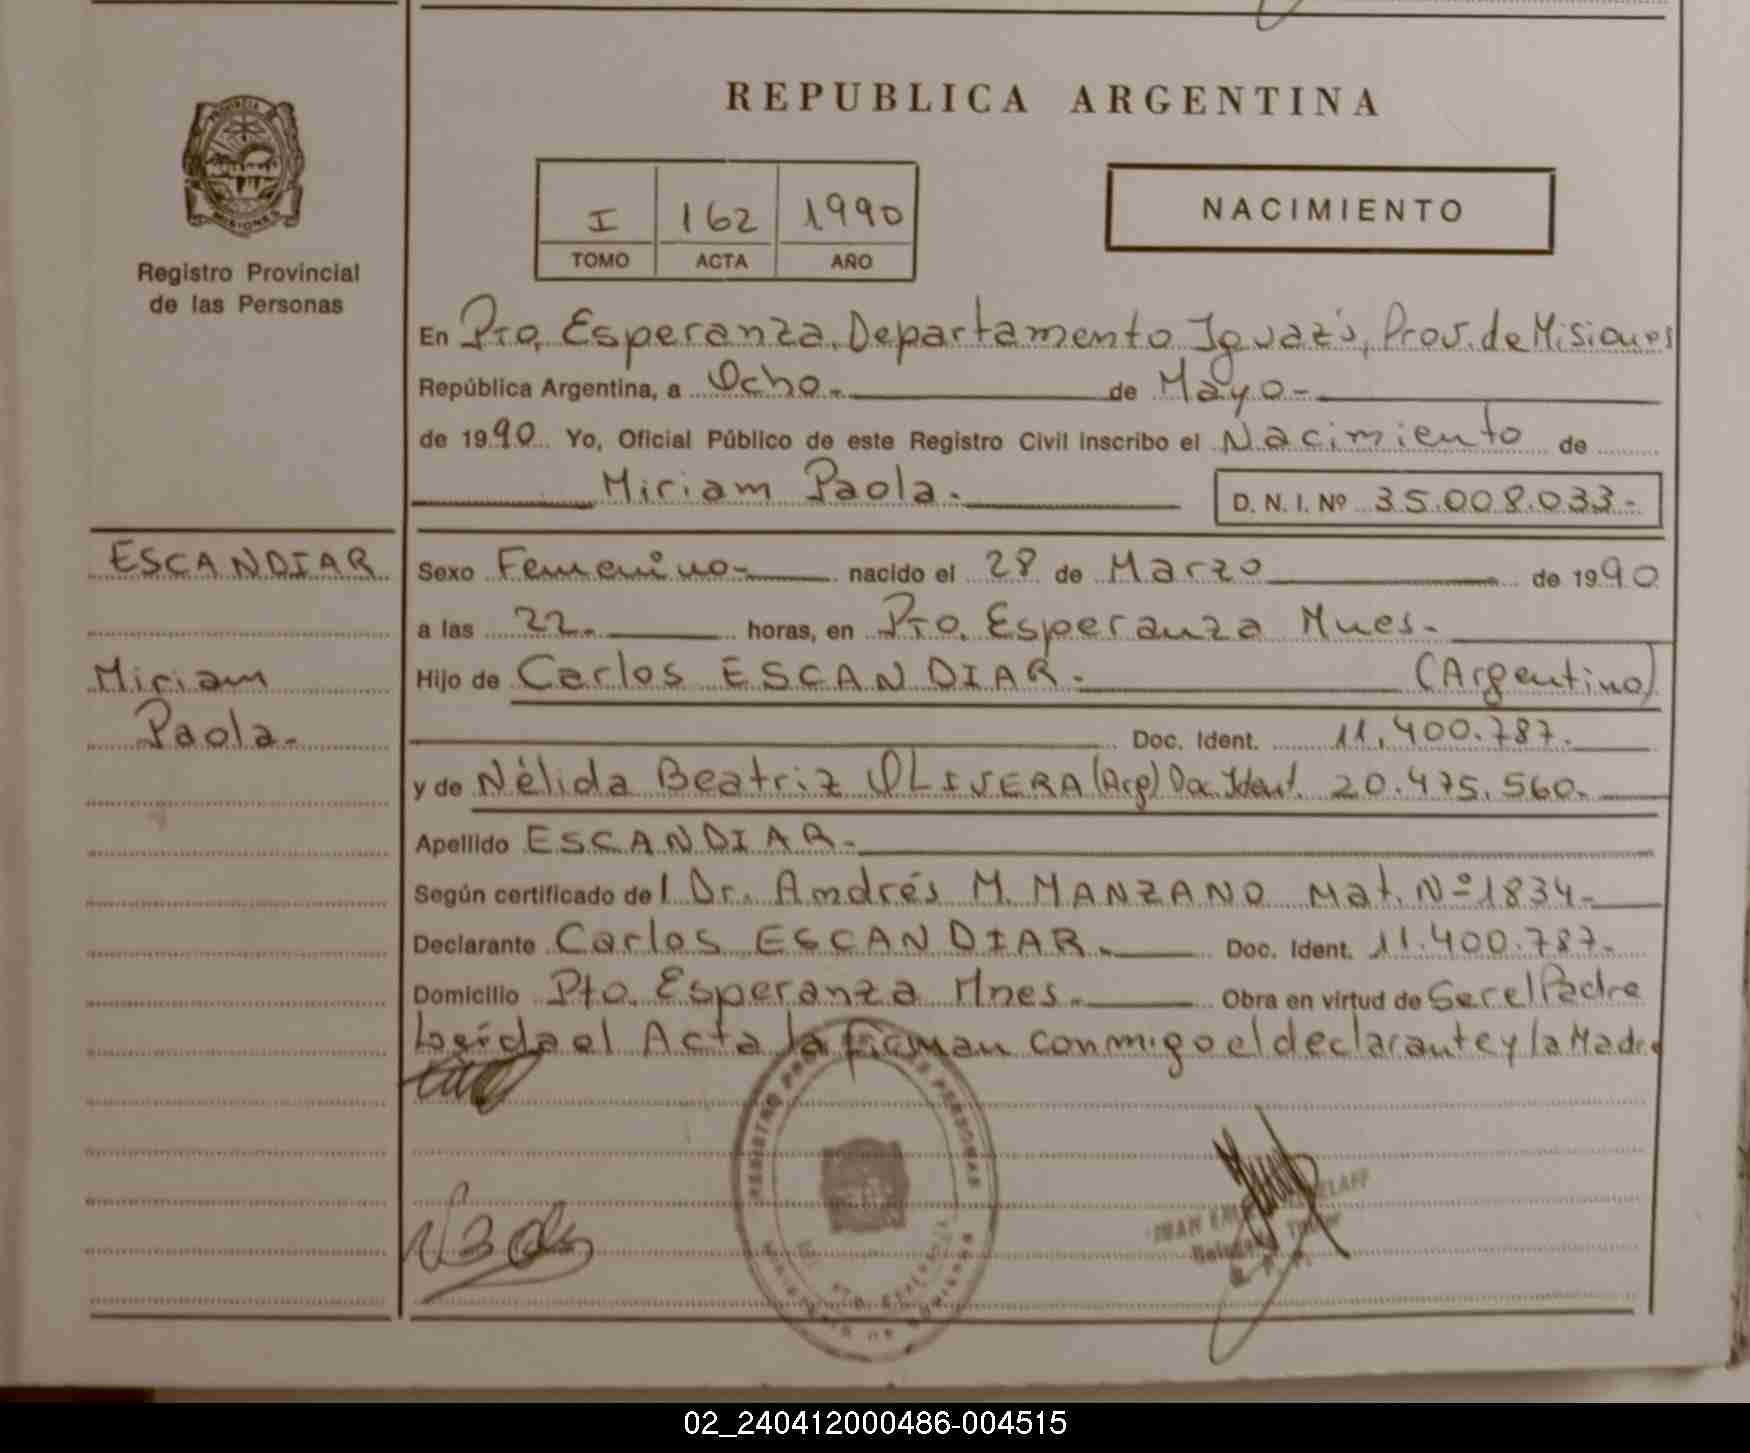 REPUBLICA ARGENTINA
PROVINCIA
MISIONES
Registro Provincial
de las Personas
I 162 1990
TOMO ACTA AÑO
NACIMIENTO
En Pto. Esperanza, Departamento Iguazú, Prov. de Misiones
República Argentina, a Ocho.- de Mayo.-
de 1990 Yo, Oficial Público de este Registro Civil inscribo el Nacimiento de
Miriam Paola.- D. N. I. Nº 35.008.033.-
ESCANDIAR
Miriam
Paola.-
Sexo Femenino.- nacido el 28 de Marzo de 1990
a las 22.- horas, en Pto. Esperanza Mnes.-
Hijo de Carlos ESCANDIAR.- (Argentino)
Doc. Ident. 11.400.787.-
y de Nélida Beatriz OLIVERA (Arg) Doc. Ident. 20.475.560.-
Apellido ESCANDIAR.-
Según certificado del Dr. Andrés M. MANZANO Mat. Nº 1834.-
Declarante Carlos ESCANDIAR.- Doc. Ident. 11.400.787.-
Domicilio Pto. Esperanza Mnes.- Obra en virtud de Ser el Padre
Leída el Acta la firman conmigo el declarante y la Madre
REGISTRO PERSONAS
02_240412000486-004515